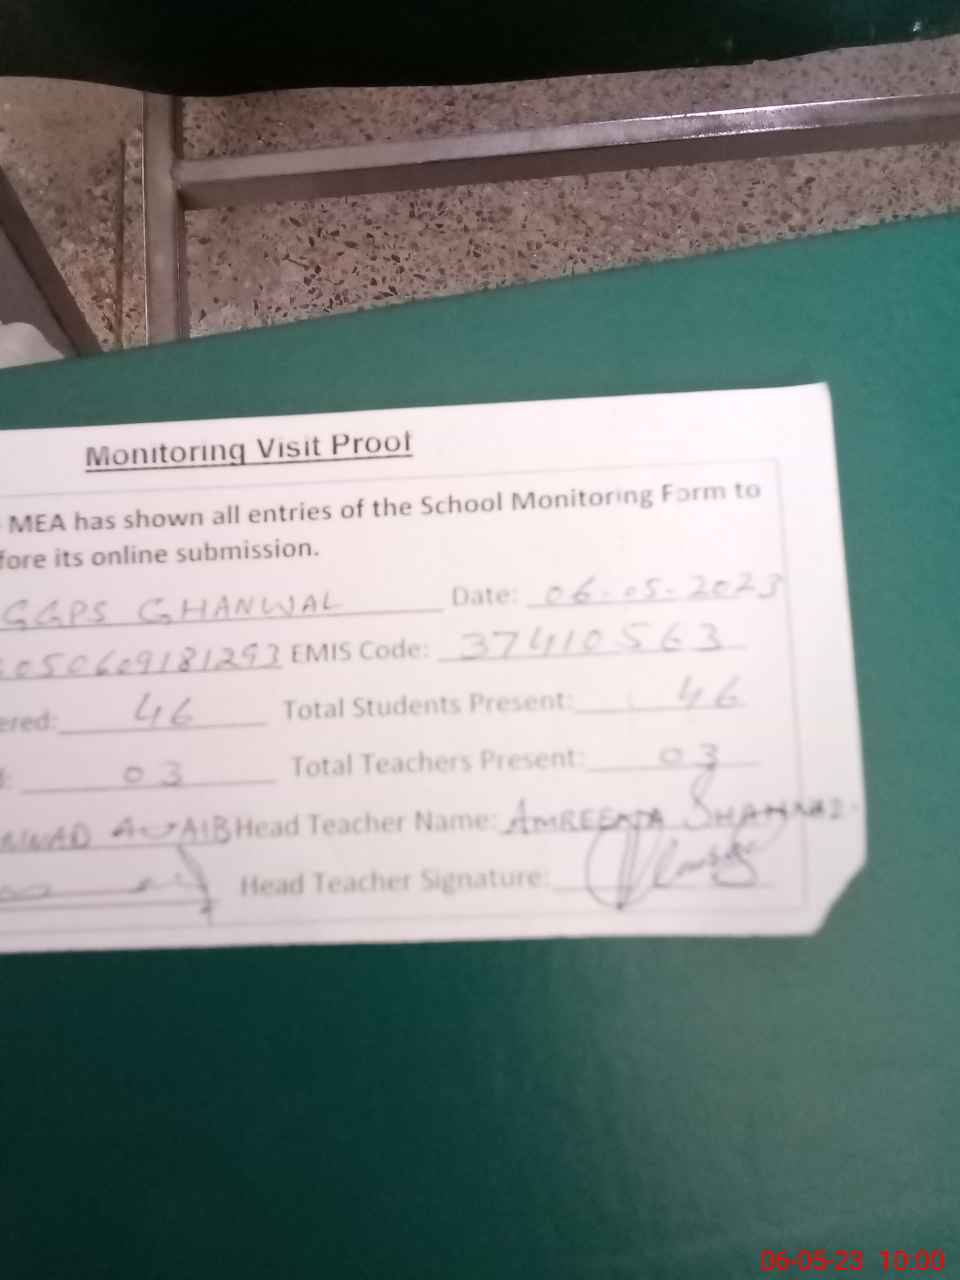 Monitoring Visit Proof
MEA has shown all entries of the School Monitoring Form to
fore its online submission.
GGPS GHANWAL Date: 06-05-2023
050609181293 EMIS Code: 37410563
ered: 46 Total Students Present: 46
03 Total Teachers Present: 03
Head Teacher Name: AMREENA SHAHNAZ
Head Teacher Signature:
06-05-23 10:00